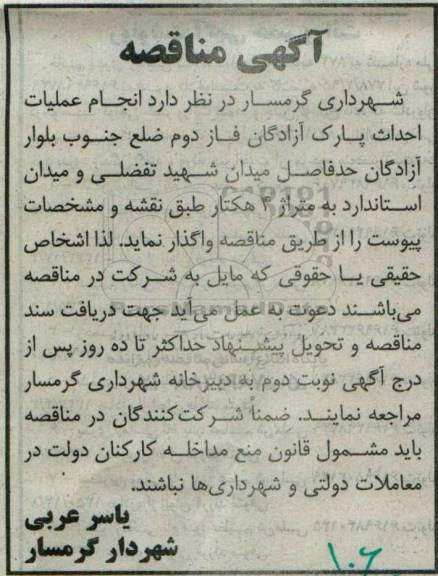 آگهی مناقصه
شهرداری گرمسار در نظر دارد انجام عملیات
احداث پارک آزادگان فاز دوم ضلع جنوب بلوار
آزادگان حدفاصل میدان شهید تفضلی و میدان
استاندارد به متراژ ۴ هکتار طبق نقشه و مشخصات
پیوست را از طریق مناقصه واگذار نماید. لذا اشخاص
حقیقی یا حقوقی که مایل به شرکت در مناقصه
می‌باشند دعوت به عمل می‌آید جهت دریافت سند
مناقصه و تحویل پیشنهاد حداکثر تا ده روز پس از
درج آگهی نوبت دوم به دبیرخانه شهرداری گرمسار
مراجعه نمایند. ضمناً شرکت‌کنندگان در مناقصه
باید مشمول قانون منع مداخله کارکنان دولت در
معاملات دولتی و شهرداری‌ها نباشند.
یاسر عربی
شهردار گرمسار
۱۰۶